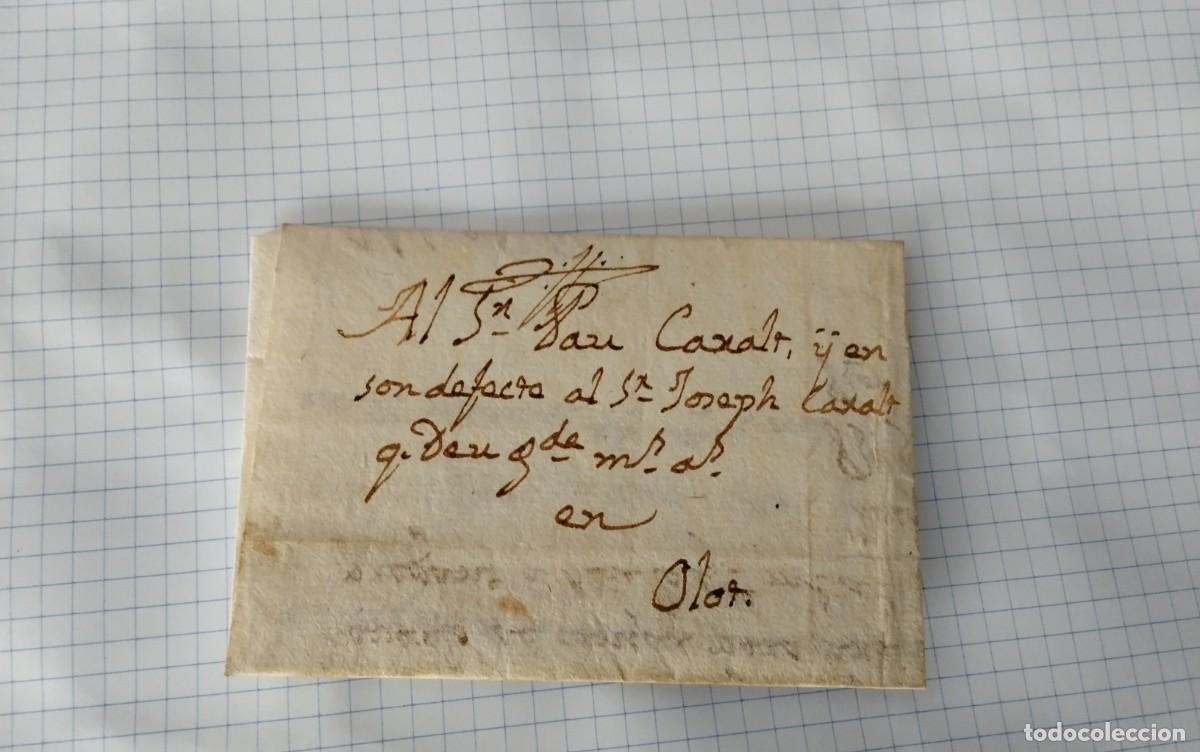 Al Sr. Pau Caxalt, ÿ en
son defecte al Sr. Joseph Caxalt
q. Deu gde ms. as.
en
Olot.
todocoleccion